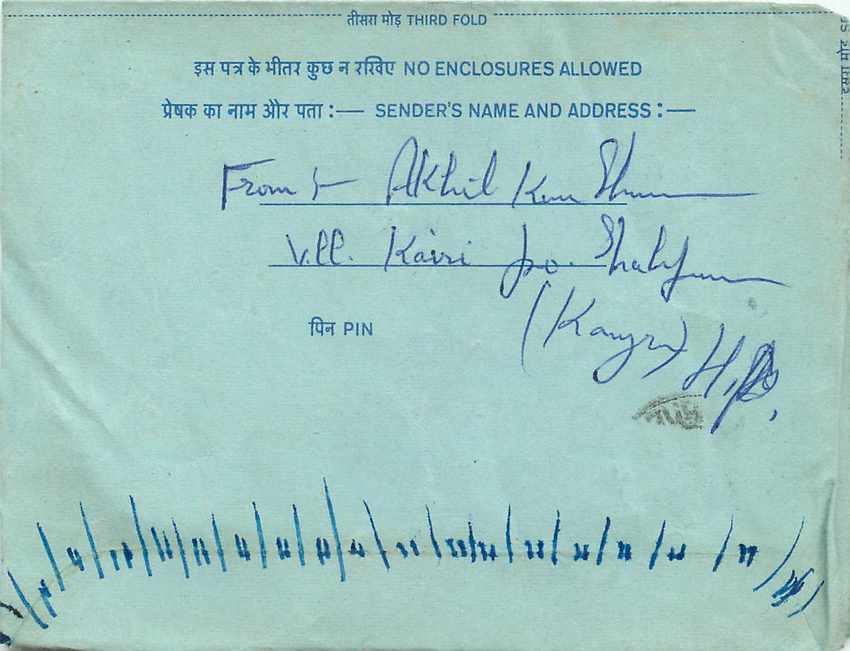 तीसरा मोड़ THIRD FOLD
इस पत्र के भीतर कुछ न रखिए NO ENCLOSURES ALLOWED
प्रेषक का नाम और पता :— SENDER'S NAME AND ADDRESS :—
From :- Akhil
Vill. Kairi po.
पिन PIN
(Kangra) H.P.